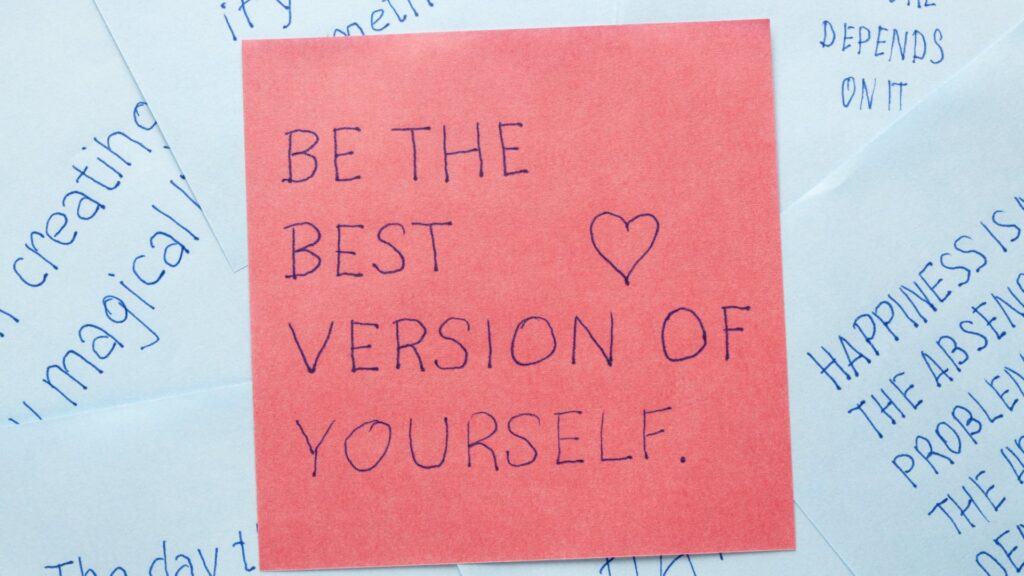 BE THE
BEST
VERSION OF
YOURSELF.
DEPENDS
ON IT
creating
magical
HAPPINESS IS
THE
PROBLEM
THE
The day